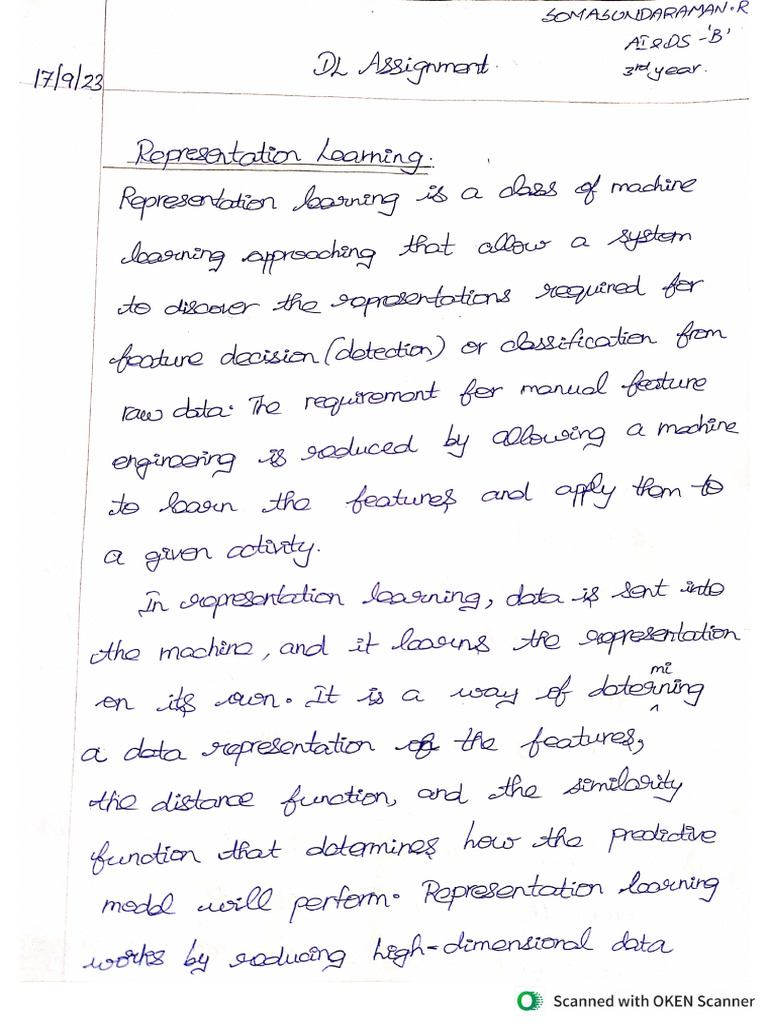 SOMASUNDARAMAN.R
AI & DS - 'B'
3rd year.
17/9/23
DL Assignment.
Representation Learning.
Representation learning is a class of machine
learning approaching that allow a system
to discover the representations required for
feature decision (detection) or classification from
raw data. The requirement for manual feature
engineering is reduced by allowing a machine
to learn the features and apply them to
a given activity.
In representation learning, data is sent into
the machine, and it learns the representation
on its own. It is a way of determining
a data representation of the features,
the distance function, and the similarity
function that determines how the predictive
model will perform. Representation learning
works by reducing high-dimensional data
Scanned with OKEN Scanner